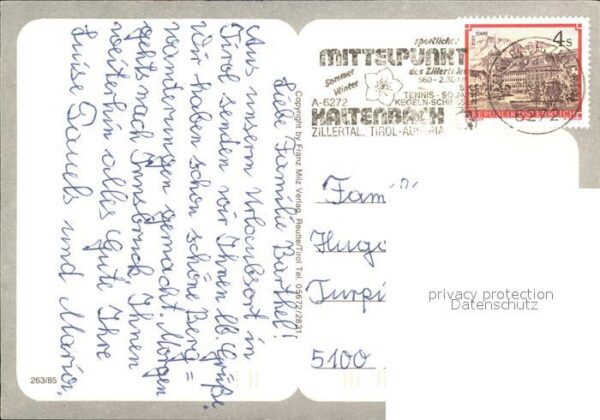 Liebe Familie Barthel!
Aus unserm Urlaubsort in
Tirol senden wir Ihnen lb. Grüße.
Wir haben schon schöne Berg=
wanderungen gemacht. Morgen
gehts nach Innsbruck. Ihnen
weiterhin alles Gute, Ihre
Luise Pauels und Maria.
Copyright by Franz Milz Verlag, Reutte/Tirol Tel. 05672/2831
263/85
sportlicher
MITTELPUNKT
des Zillertales
Sommer
Winter
A-6272
TENNIS-
KEGELN-
KALTENBACH
ZILLERTAL, TIROL-AUSTRIA
STAMS
4 S
REPUBLIK ÖSTERREICH
6272
Fam
Hugo
Turpi
5100
privacy protection
Datenschutz